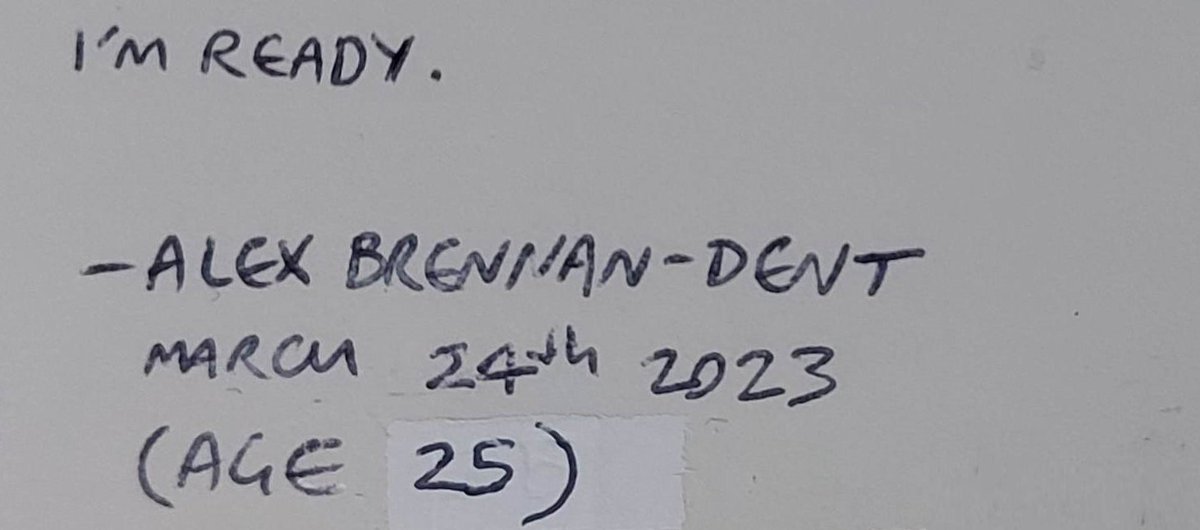 I'M READY.
-ALEX BRENNAN-DENT
MARCH 24th 2023
(AGE 25)